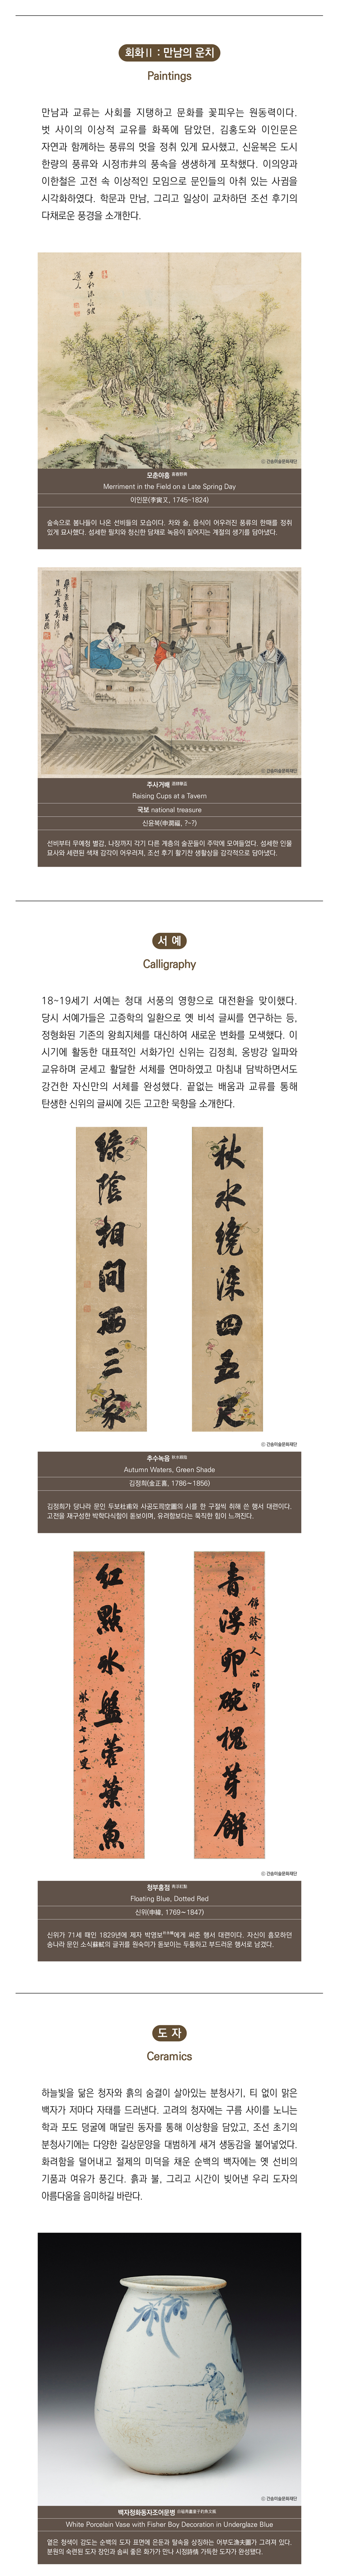 회화Ⅱ : 만남의 운치
Paintings
만남과 교류는 사회를 지탱하고 문화를 꽃피우는 원동력이다.
벗 사이의 이상적 교유를 화폭에 담았던, 김홍도와 이인문은
자연과 함께하는 풍류의 멋을 정취 있게 묘사했고, 신윤복은 도시
한량의 풍류와 시정市井의 풍속을 생생하게 포착했다. 이의양과
이한철은 고전 속 이상적인 모임으로 문인들의 아취 있는 사귐을
시각화하였다. 학문과 만남, 그리고 일상이 교차하던 조선 후기의
다채로운 풍경을 소개한다.
ⓒ 간송미술문화재단
모춘야흥
Merriment in the Field on a Late Spring Day
이인문(李寅文, 1745~1824)
숲속으로 봄나들이 나온 선비들의 모습이다. 차와 술, 음식이 어우러진 풍류의 한때를 정취
있게 묘사했다. 섬세한 필치와 청신한 담채로 녹음이 짙어지는 계절의 생기를 담아냈다.
ⓒ 간송미술문화재단
주사거배 酒肆擧盃
Raising Cups at a Tavern
국보 national treasure
신윤복(申潤福, ?~?)
선비부터 무예청 별감, 나장까지 각기 다른 계층의 술꾼들이 주막에 모여들었다. 섬세한 인물
묘사와 세련된 색채 감각이 어우러져, 조선 후기 활기찬 생활상을 감각적으로 담아냈다.
서 예
Calligraphy
18~19세기 서예는 청대 서풍의 영향으로 대전환을 맞이했다.
당시 서예가들은 고증학의 일환으로 옛 비석 글씨를 연구하는 등,
정형화된 기존의 왕희지체를 대신하여 새로운 변화를 모색했다. 이
시기에 활동한 대표적인 서화가인 신위는 김정희, 옹방강 일파와
교유하며 굳세고 활달한 서체를 연마하였고 마침내 담박하면서도
강건한 자신만의 서체를 완성했다. 끝없는 배움과 교류를 통해
탄생한 신위의 글씨에 깃든 고고한 묵향을 소개한다.
秋水纔深四五尺
綠陰相間兩三家
ⓒ 간송미술문화재단
추수녹음 秋水綠陰
Autumn Waters, Green Shade
김정희(金正喜, 1786~1856)
김정희가 당나라 문인 두보杜甫와 사공도司空圖의 시를 한 구절씩 취해 쓴 행서 대련이다.
고전을 재구성한 박학다식함이 돋보이며, 유려함보다는 묵직한 힘이 느껴진다.
青浮卵碗槐芽餠
紅點氷盤藿葉魚
紫霞七十一叟
ⓒ 간송미술문화재단
청부홍점 靑浮紅點
Floating Blue, Dotted Red
신위(申緯, 1769~1847)
신위가 71세 때인 1829년에 제자 박영보에게 써준 행서 대련이다. 자신이 흠모하던
송나라 문인 소식蘇軾의 글귀를 원숙미가 돋보이는 두툼하고 부드러운 행서로 남겼다.
도 자
Ceramics
하늘빛을 닮은 청자와 흙의 숨결이 살아있는 분청사기, 티 없이 맑은
백자가 저마다 자태를 드러낸다. 고려의 청자에는 구름 사이를 노니는
학과 포도 덩굴에 매달린 동자를 통해 이상향을 담았고, 조선 초기의
분청사기에는 다양한 길상문양을 대범하게 새겨 생동감을 불어넣었다.
화려함을 덜어내고 절제의 미덕을 채운 순백의 백자에는 옛 선비의
기품과 여유가 풍긴다. 흙과 불, 그리고 시간이 빚어낸 우리 도자의
아름다움을 음미하길 바란다.
ⓒ 간송미술문화재단
백자청화동자조어문병 白磁靑畵童子釣魚文甁
White Porcelain Vase with Fisher Boy Decoration in Underglaze Blue
옅은 청색이 감도는 순백의 도자 표면에 은둔과 탈속을 상징하는 어부도漁夫圖가 그려져 있다.
분원의 숙련된 도자 장인과 솜씨 좋은 화가가 만나 시정詩情 가득한 도자가 완성됐다.